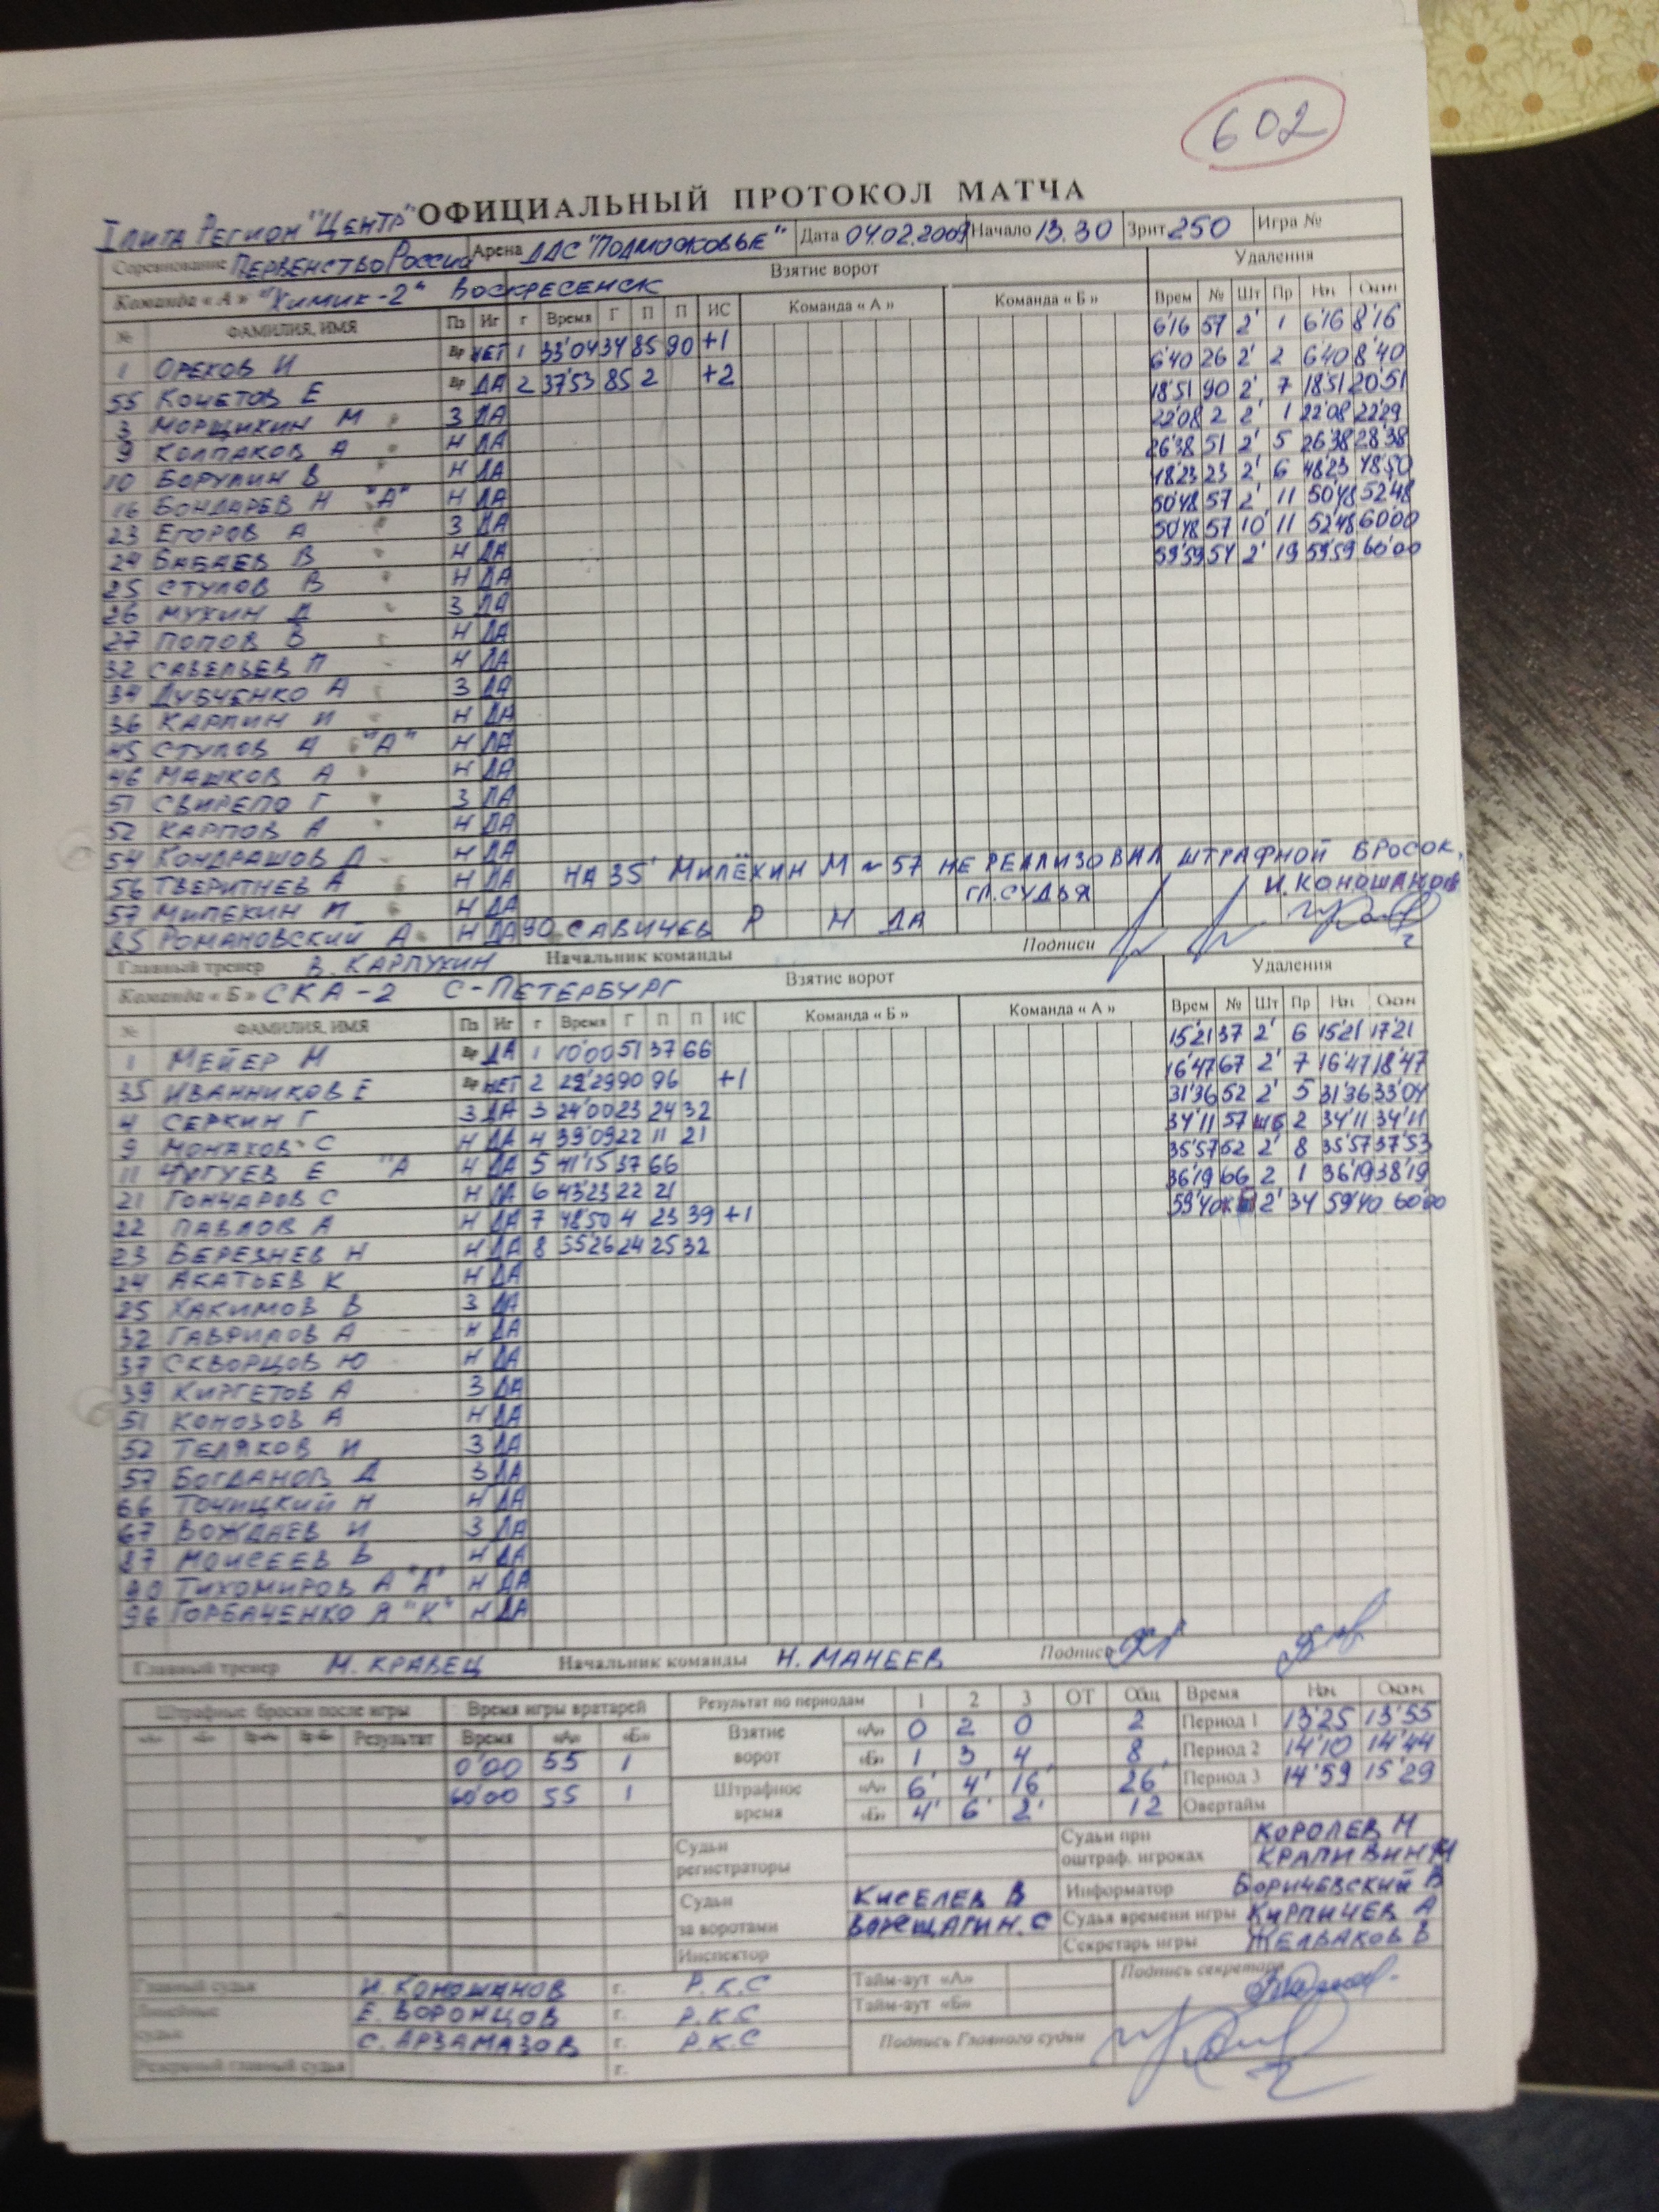 602
ОФИЦИАЛЬНЫЙ ПРОТОКОЛ МАТЧА
I лига Регион "Центр"
Соревнование Первенство России Арена ЛДС "Подмосковье" Дата 04.02.2009 Начало 13.30 Зрит 250 Игра №
Команда «А» "Химик-2" Воскресенск Взятие ворот Удаления
№ ФАМИЛИЯ, ИМЯ Пз Иг г Время Г П П ИС Команда «А» Команда «Б» Врем № Шт Пр Нач Окон
1 ОРЕХОВ И Вр НЕТ 1 33'04 34 85 90 +1 6'16 57 2' 1 6'16 8'16
55 КОЧЕТОВ Е Вр ДА 2 37'53 85 2 +2 6'40 26 2' 2 6'40 8'40
3 МОРЩИХИН М З ДА 18'51 90 2' 7 18'51 20'51
9 КОЛПАКОВ А Н ДА 22'08 2 2' 1 22'08 22'29
10 БОРУЛИН В Н ДА 26'38 51 2' 5 26'38 28'38
16 БОНДАРЕВ Н "А" Н ДА 48'23 23 2' 6 48'23 48'50
23 ЕГОРОВ А З ДА 50'48 57 2' 11 50'48 52'48
24 БАБАЕВ В Н ДА 50'48 57 10' 11 52'48 60'00
25 СТУЛОВ В Н ДА 59'59 54 2' 19 59'59 60'00
26 МУХИН Д З ДА
27 ПОПОВ В Н ДА
32 САВЕЛЬЕВ П Н ДА
34 ДУБЧЕНКО А З ДА
36 КАРПИН И Н ДА
45 СТУЛОВ А "А" Н ДА
46 МАШКОВ А Н ДА
51 СВИРЕПО Г З ДА
52 КАРПОВ А Н ДА
54 КОНДРАШОВ Д Н ДА
56 ТВЕРИТНЕВ А Н ДА НА 35' МИЛЁХИН М № 57 НЕ РЕАЛИЗОВАЛ ШТРАФНОЙ БРОСОК,
57 МИЛЕХИН М Н ДА ГЛ.СУДЬЯ И. КОНОШАНОВ
85 РОМАНОВСКИЙ А Н ДА 90 САВИЧЕВ Р Н ДА
Главный тренер В. КАРПУХИН Начальник команды Подписи
Команда «Б» СКА-2 С-ПЕТЕРБУРГ Взятие ворот Удаления
№ ФАМИЛИЯ, ИМЯ Пз Иг г Время Г П П ИС Команда «Б» Команда «А» Врем № Шт Пр Нач Окон
1 МЕЙЕР М Вр ДА 1 10'00 51 37 66 15'21 37 2' 6 15'21 17'21
35 ИВАННИКОВ Е Вр НЕТ 2 22'29 90 96 +1 16'47 67 2' 7 16'47 18'47
4 СЕРКИН Г З ДА 3 24'00 23 24 32 31'36 52 2' 5 31'36 33'04
9 МОНАХОВ С Н ДА 4 39'09 22 11 21 34'11 57 ШБ 2 34'11 34'11
11 ЧУГУЕВ Е "А Н ДА 5 41'15 37 66 35'57 52 2' 8 35'57 37'53
21 ГОНЧАРОВ С Н ДА 6 43'23 22 21 36'19 66 2 1 36'19 38'19
22 ПАВЛОВ А Н ДА 7 48'50 4 23 39 +1 59'40 2' 34 59'40 60'00
23 БЕРЕЗНЕВ Н Н ДА 8 55'26 24 25 32
24 АКАТЬЕВ К Н ДА
25 ХАКИМОВ В З ДА
32 ГАВРИЛОВ А Н ДА
37 СКВОРЦОВ Ю Н ДА
39 КИРГЕТОВ А З ДА
51 КОНОЗОВ А Н ДА
52 ТЕЛЯКОВ И З ДА
57 БОГДАНОВ Д З ДА
66 ТОЧИЦКИЙ Н Н ДА
67 ВОЖДАЕВ И З ДА
87 МОИСЕЕВ В Н ДА
90 ТИХОМИРОВ А "А" Н ДА
96 ГОРБАЧЕНКО А "К" Н ДА
Главный тренер М. КРАВЕЦ Начальник команды Н. МАНЕЕВ Подписи
Штрафные броски после игры Время игры вратарей Результат по периодам 1 2 3 ОТ Общ Время Нач Окон
«А» «Б» Вр-А Вр-Б Результат Время «А» «Б» Взятие ворот «А» 0 2 0 2 Период 1 13'25 13'55
0'00 55 1 «Б» 1 3 4 8 Период 2 14'10 14'44
60'00 55 1 Штрафное время «А» 6' 4' 16' 26' Период 3 14'59 15'29
«Б» 4' 6' 2' 12 Овертайм
Судьи регистраторы Судьи при оштраф. игроках КОРОЛЕВ М
КРАПИВИН М
Судьи за воротами КИСЕЛЕВ В Информатор БОРИЧЕВСКИЙ В
ВЕРЕЩАГИН. С Судья времени игры КИРПИЧЕВ А
Инспектор Секретарь игры ЖЕЛВАКОВ В
Главный судья И. КОНОШАНОВ г. Р.К.С Тайм-аут «А» Подпись секретаря
Линейные судьи Е. ВОРОНЦОВ г. Р.К.С Тайм-аут «Б»
С. АРЗАМАЗОВ г. Р.К.С Подпись Главного судьи
Резервный главный судья г.